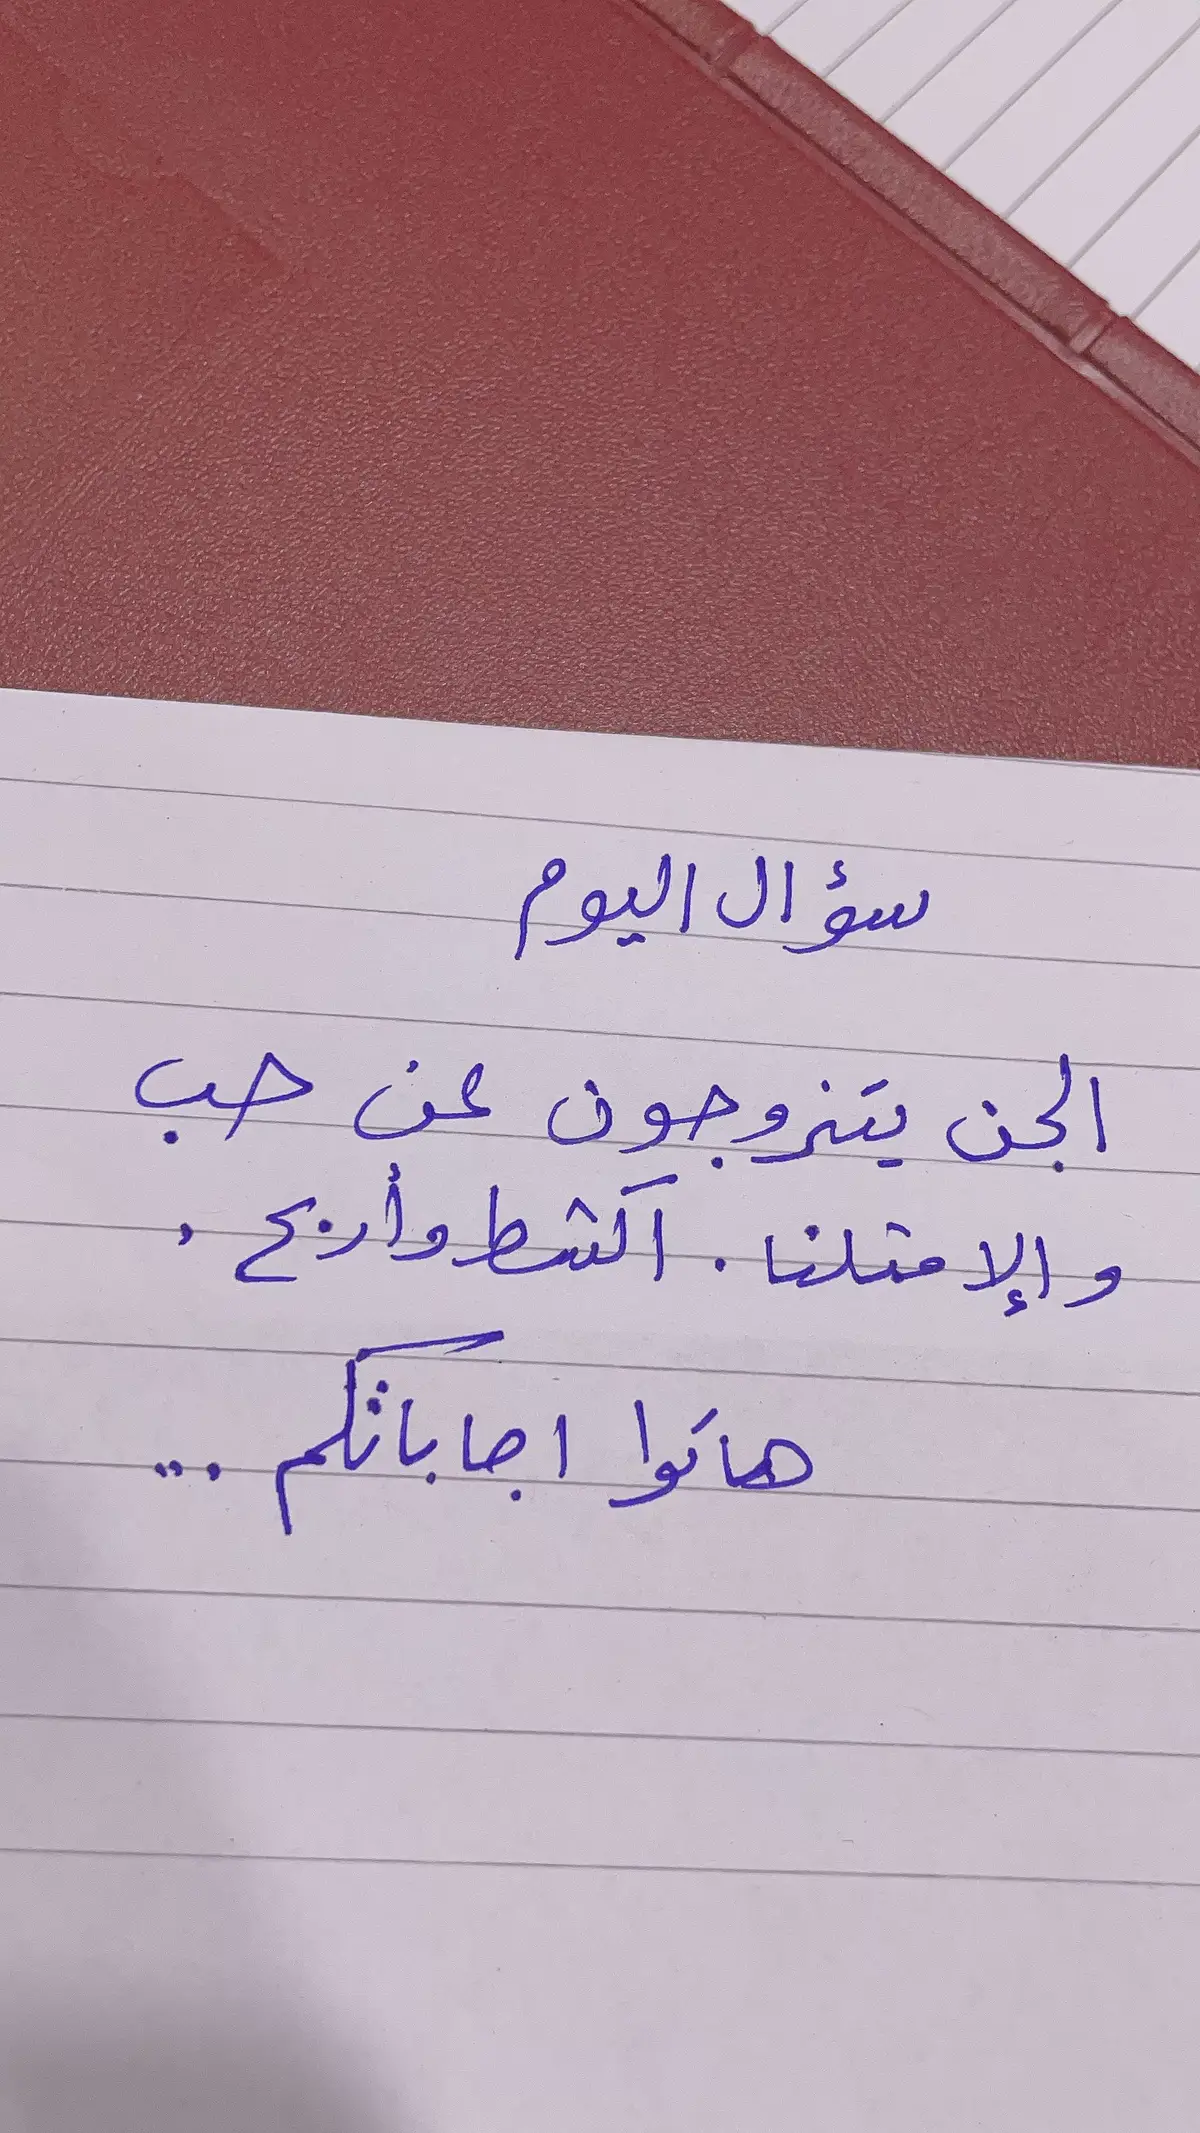 سؤال اليوم
الجن يتزوجون عن حب
و الإ متلنا . اكشط وأربح .
هاتوا اجاباتكم ...